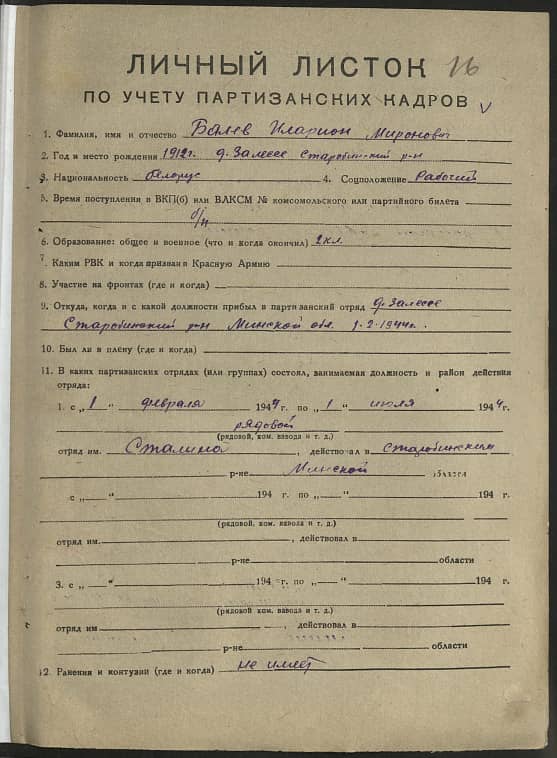 ЛИЧНЫЙ ЛИСТОК 16
ПО УЧЕТУ ПАРТИЗАНСКИХ КАДРОВ
1. Фамилия, имя и отчество Балев Иларион Миронович
2. Год и место рождения 1912 г. д. Залесье Старобинский р-н
3. Национальность белорус 4. Соцположение Рабочий
5. Время поступления в ВКП(б) или ВЛКСМ № комсомольского или партийного билета
б/п
6. Образование: общее и военное (что и когда окончил) 2 кл.
7. Каким РВК и когда призван в Красную Армию
8. Участие на фронтах (где и когда)
9. Откуда, когда и с какой должности прибыл в партизанский отряд д. Залесье
Старобинский р-н Минской обл. 1-2-1944 г.
10. Был ли в плену (где и когда)
11. В каких партизанских отрядах (или группах) состоял, занимаемая должность и район действия
отряда:
1. с „1“ февраля 1944 г. по „1“ июля 1944 г.
рядовой
(рядовой, ком. взвода и т. д.)
отряд им. Сталина, действовал в Старобинском
р-не Минской области
с „ “ 194 г. по „ “ 194 г.
(рядовой, ком. взвода и т. д.)
отряд им. , действовал в
р-не области
3. с „ “ 194 г. по „ “ 194 г.
(рядовой ком. взвода и т. д.)
отряд им , действовал в
р-не области
12. Ранения и контузии (где и когда) не имеет